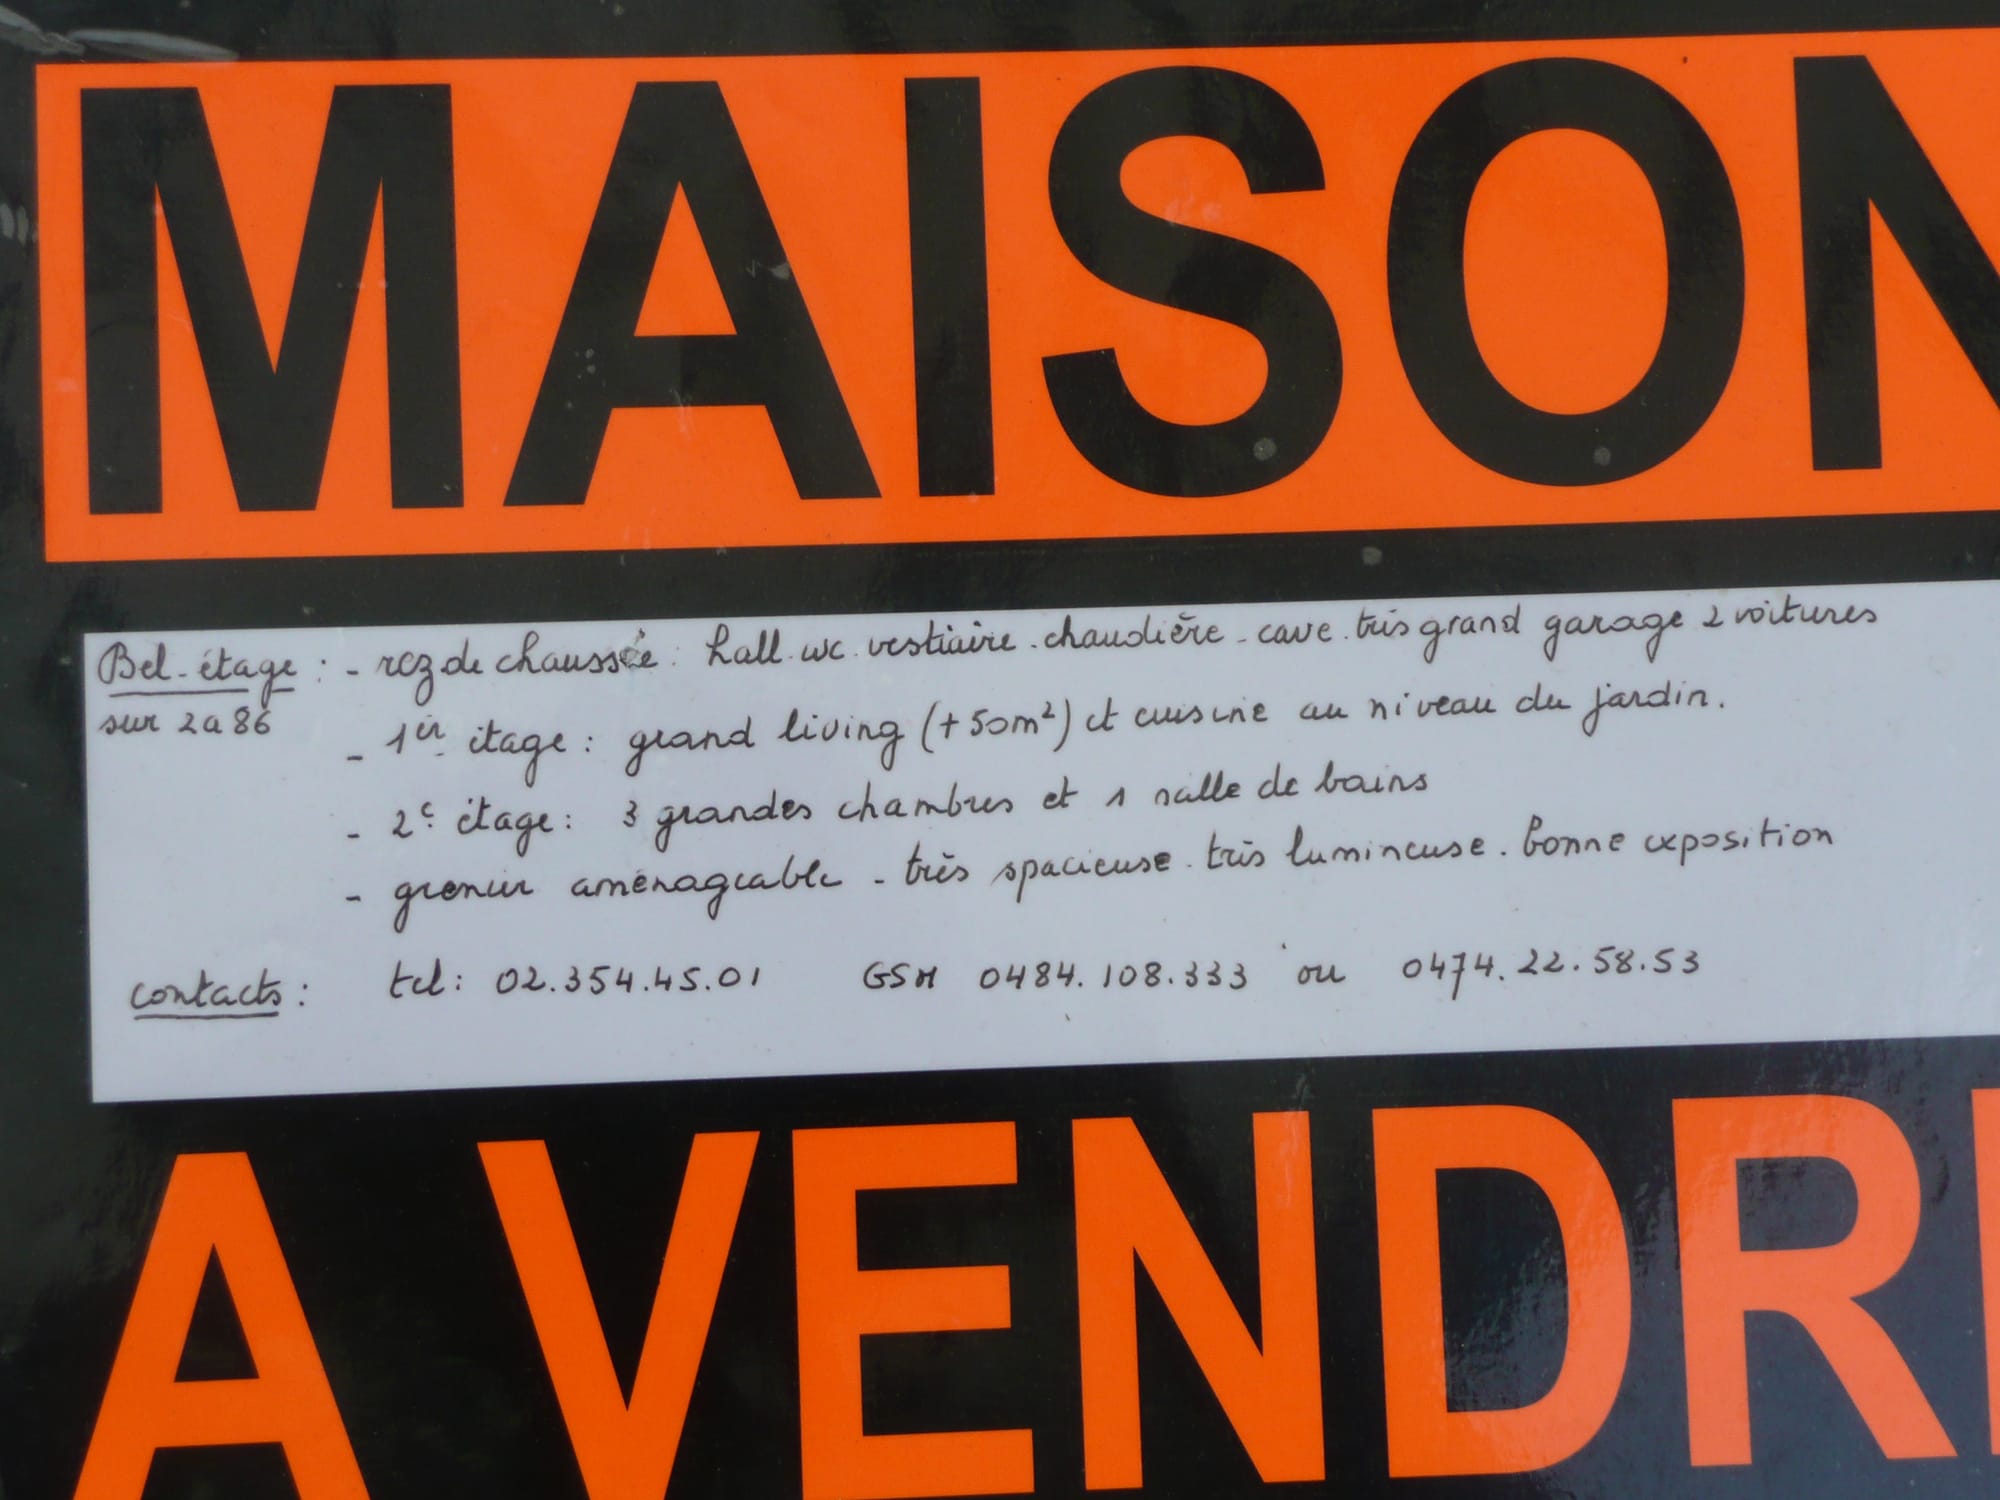 MAISON
Bel-étage : - rez de chaussée : hall. wc. vestiaire. chaudière - cave. très grand garage 2 voitures
sur 2a86
- 1er étage : grand living (+50m²) et cuisine au niveau du jardin.
- 2e étage : 3 grandes chambres et 1 salle de bains
- grenier aménageable - très spacieuse. très lumineuse. bonne exposition
contacts : tel : 02.354.45.01 GSM 0484.108.333 ou 0474.22.58.53
A VENDR